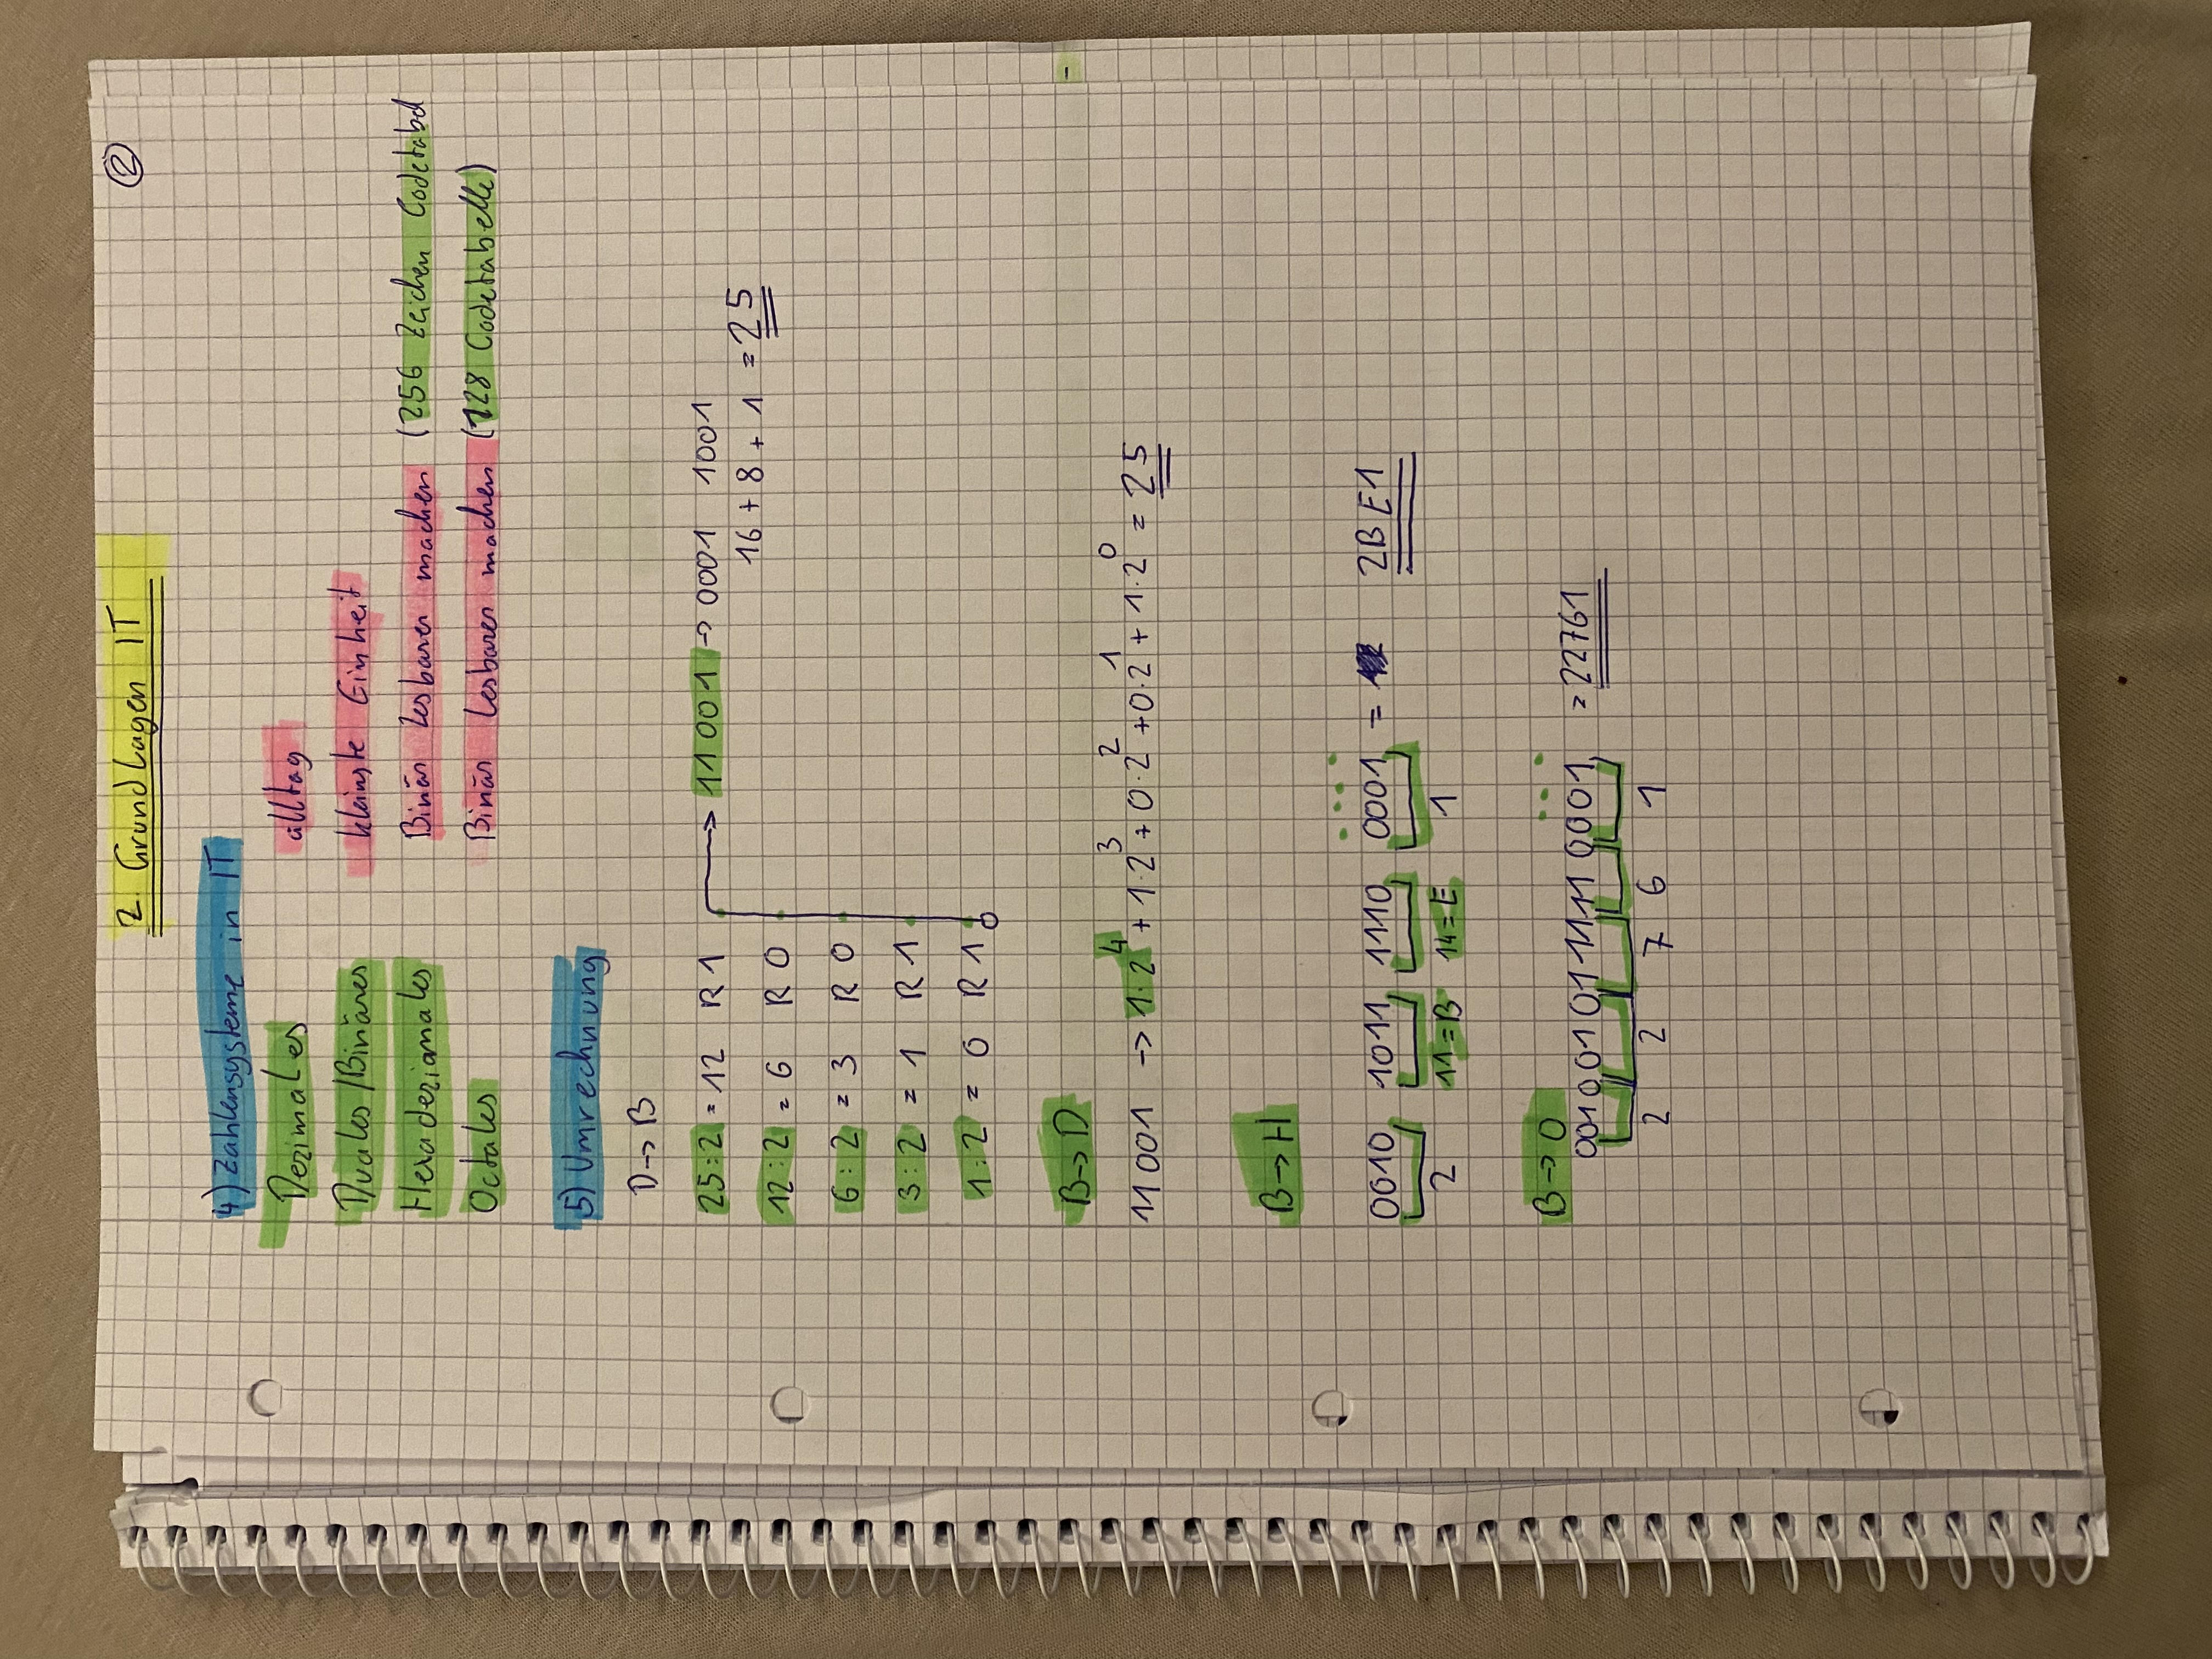 2. Grundlagen IT
2
4) Zahlensysteme in IT
Dezimales alltag
Duales/Binäres kleinste Einheit
Hexadezimales Binär Lesbarer machen (256 Zeichen Codetabel
Octales Binär Lesbarer machen (128 Codetabelle)
5) Umrechnung
D→B
25:2 = 12 R 1 → 11001 → 0001 1001
16 + 8 + 1 = 25
12:2 = 6 R 0
6:2 = 3 R 0
3:2 = 1 R 1
1:2 = 0 R 1
B→D
11001 → 1·2⁴ + 1·2³ + 0·2² + 0·2¹ + 1·2⁰ = 25
B→H
0010 1011 1110 0001 = 2BE1
2 11=B 14=E 1
B→O
0010 010 111 110 001 = 22761
2 2 7 6 1